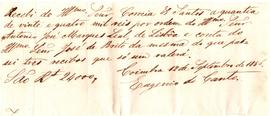 Recebi do Illmo. Senr. Correia & Santos a quantia
de vinte e quatro mil reis por ordem do Illmo. Snr.
Antonio José Marques Leal de Lisboa e conta do
Illmo. Senr. José de Brito da mesma de que passei
tres recibos que só um valerá.
São Rs. 24000,, Coimbra 18 de Setembro de 186
Eugenio de Castro